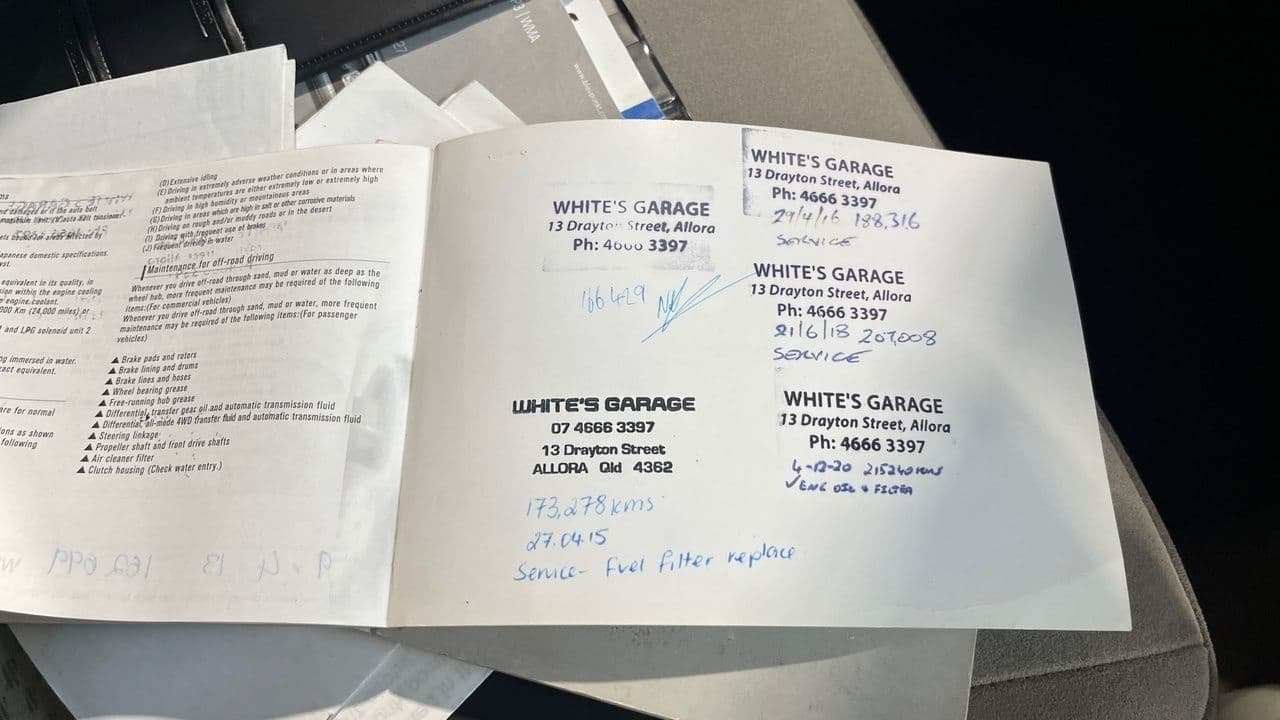 3 | WMA
27
(D) Extensive idling
(E) Driving in extremely adverse weather conditions or in areas where
ambient temperatures are either extremely low or extremely high
(F) Driving in high humidity or mountainous areas
(G) Driving in areas which are high in salt or other corrosive materials
(H) Driving on rough and/or muddy roads or in the desert
(I) Driving with frequent use of brakes
(J) Frequent driving in water
Maintenance for off-road driving
Whenever you drive off-road through sand, mud or water as deep as the
wheel hub, more frequent maintenance may be required of the following
items:(For commercial vehicles)
Whenever you drive off-road through sand, mud or water, more frequent
maintenance may be required of the following items:(For passenger
vehicles)
▲ Brake pads and rotors
▲ Brake lining and drums
▲ Brake lines and hoses
▲ Wheel bearing grease
▲ Free-running hub grease
▲ Differential, transfer gear oil and automatic transmission fluid
▲ Differential, all-mode 4WD transfer fluid and automatic transmission fluid
▲ Steering linkage
▲ Propeller shaft and front drive shafts
▲ Air cleaner filter
▲ Clutch housing (Check water entry.)
apanese domestic specifications.
equivalent in its quality, in
sion within the engine cooling
engine coolant.
000 Km (24,000 miles) or
and LPG solenoid unit 2
ng immersed in water.
act equivalent.
are for normal
ons as shown
following
WHITE'S GARAGE
13 Drayton Street, Allora
Ph: 4666 3397
166429
WHITE'S GARAGE
07 4666 3397
13 Drayton Street
ALLORA Qld 4362
173,278 kms
27.04.15
Service - Fuel filter replace
WHITE'S GARAGE
13 Drayton Street, Allora
Ph: 4666 3397
29/4/16 188,316
SERVICE
WHITE'S GARAGE
13 Drayton Street, Allora
Ph: 4666 3397
21/6/18 207,008
SERVICE
WHITE'S GARAGE
13 Drayton Street, Allora
Ph: 4666 3397
4-12-20 215240 KMS
✓ENG OIL + FILTER